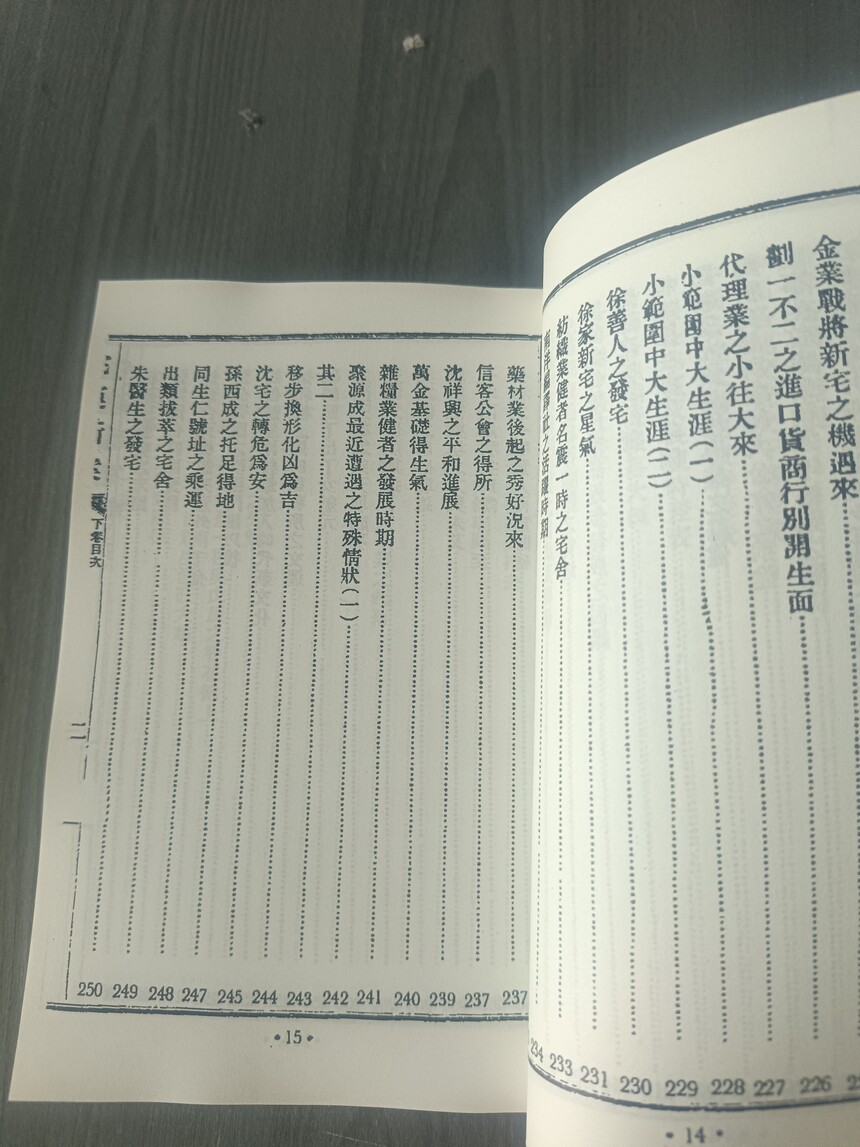 金業戰將新宅之機遇來
劃一不二之進口貨商行別開生面 226
代理業之小往大來 227
小範圍中大生涯(一) 228
小範圍中大生涯(二) 229
徐善人之發宅 230
徐家新宅之星氣 231
紡織業健者名震一時之宅舍 233
編譯社之活躍時期 234
•14•
藥材業後起之秀好況來 237
信客公會之得所 237
沈祥興之平和進展 239
萬金基礎得生氣 240
雜糧業健者之發展時期 241
聚源成最近遭遇之特殊情狀(一) 242
其二 243
移步換形化凶爲吉 244
沈宅之轉危爲安 245
孫西成之托足得地 247
同生仁號址之乘運 248
出類拔萃之宅舍 249
朱醫生之發宅 250
下卷目次
二
•15•